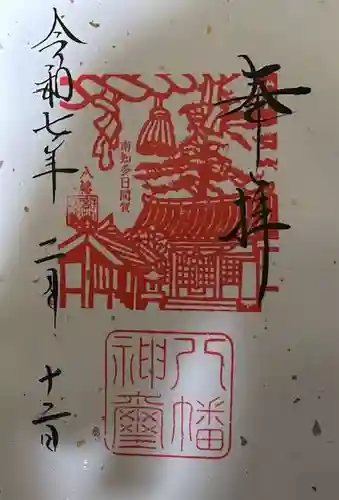 奉拝
八幡
神璽
南知多日間賀
八幡
令和七年 二月 十二日